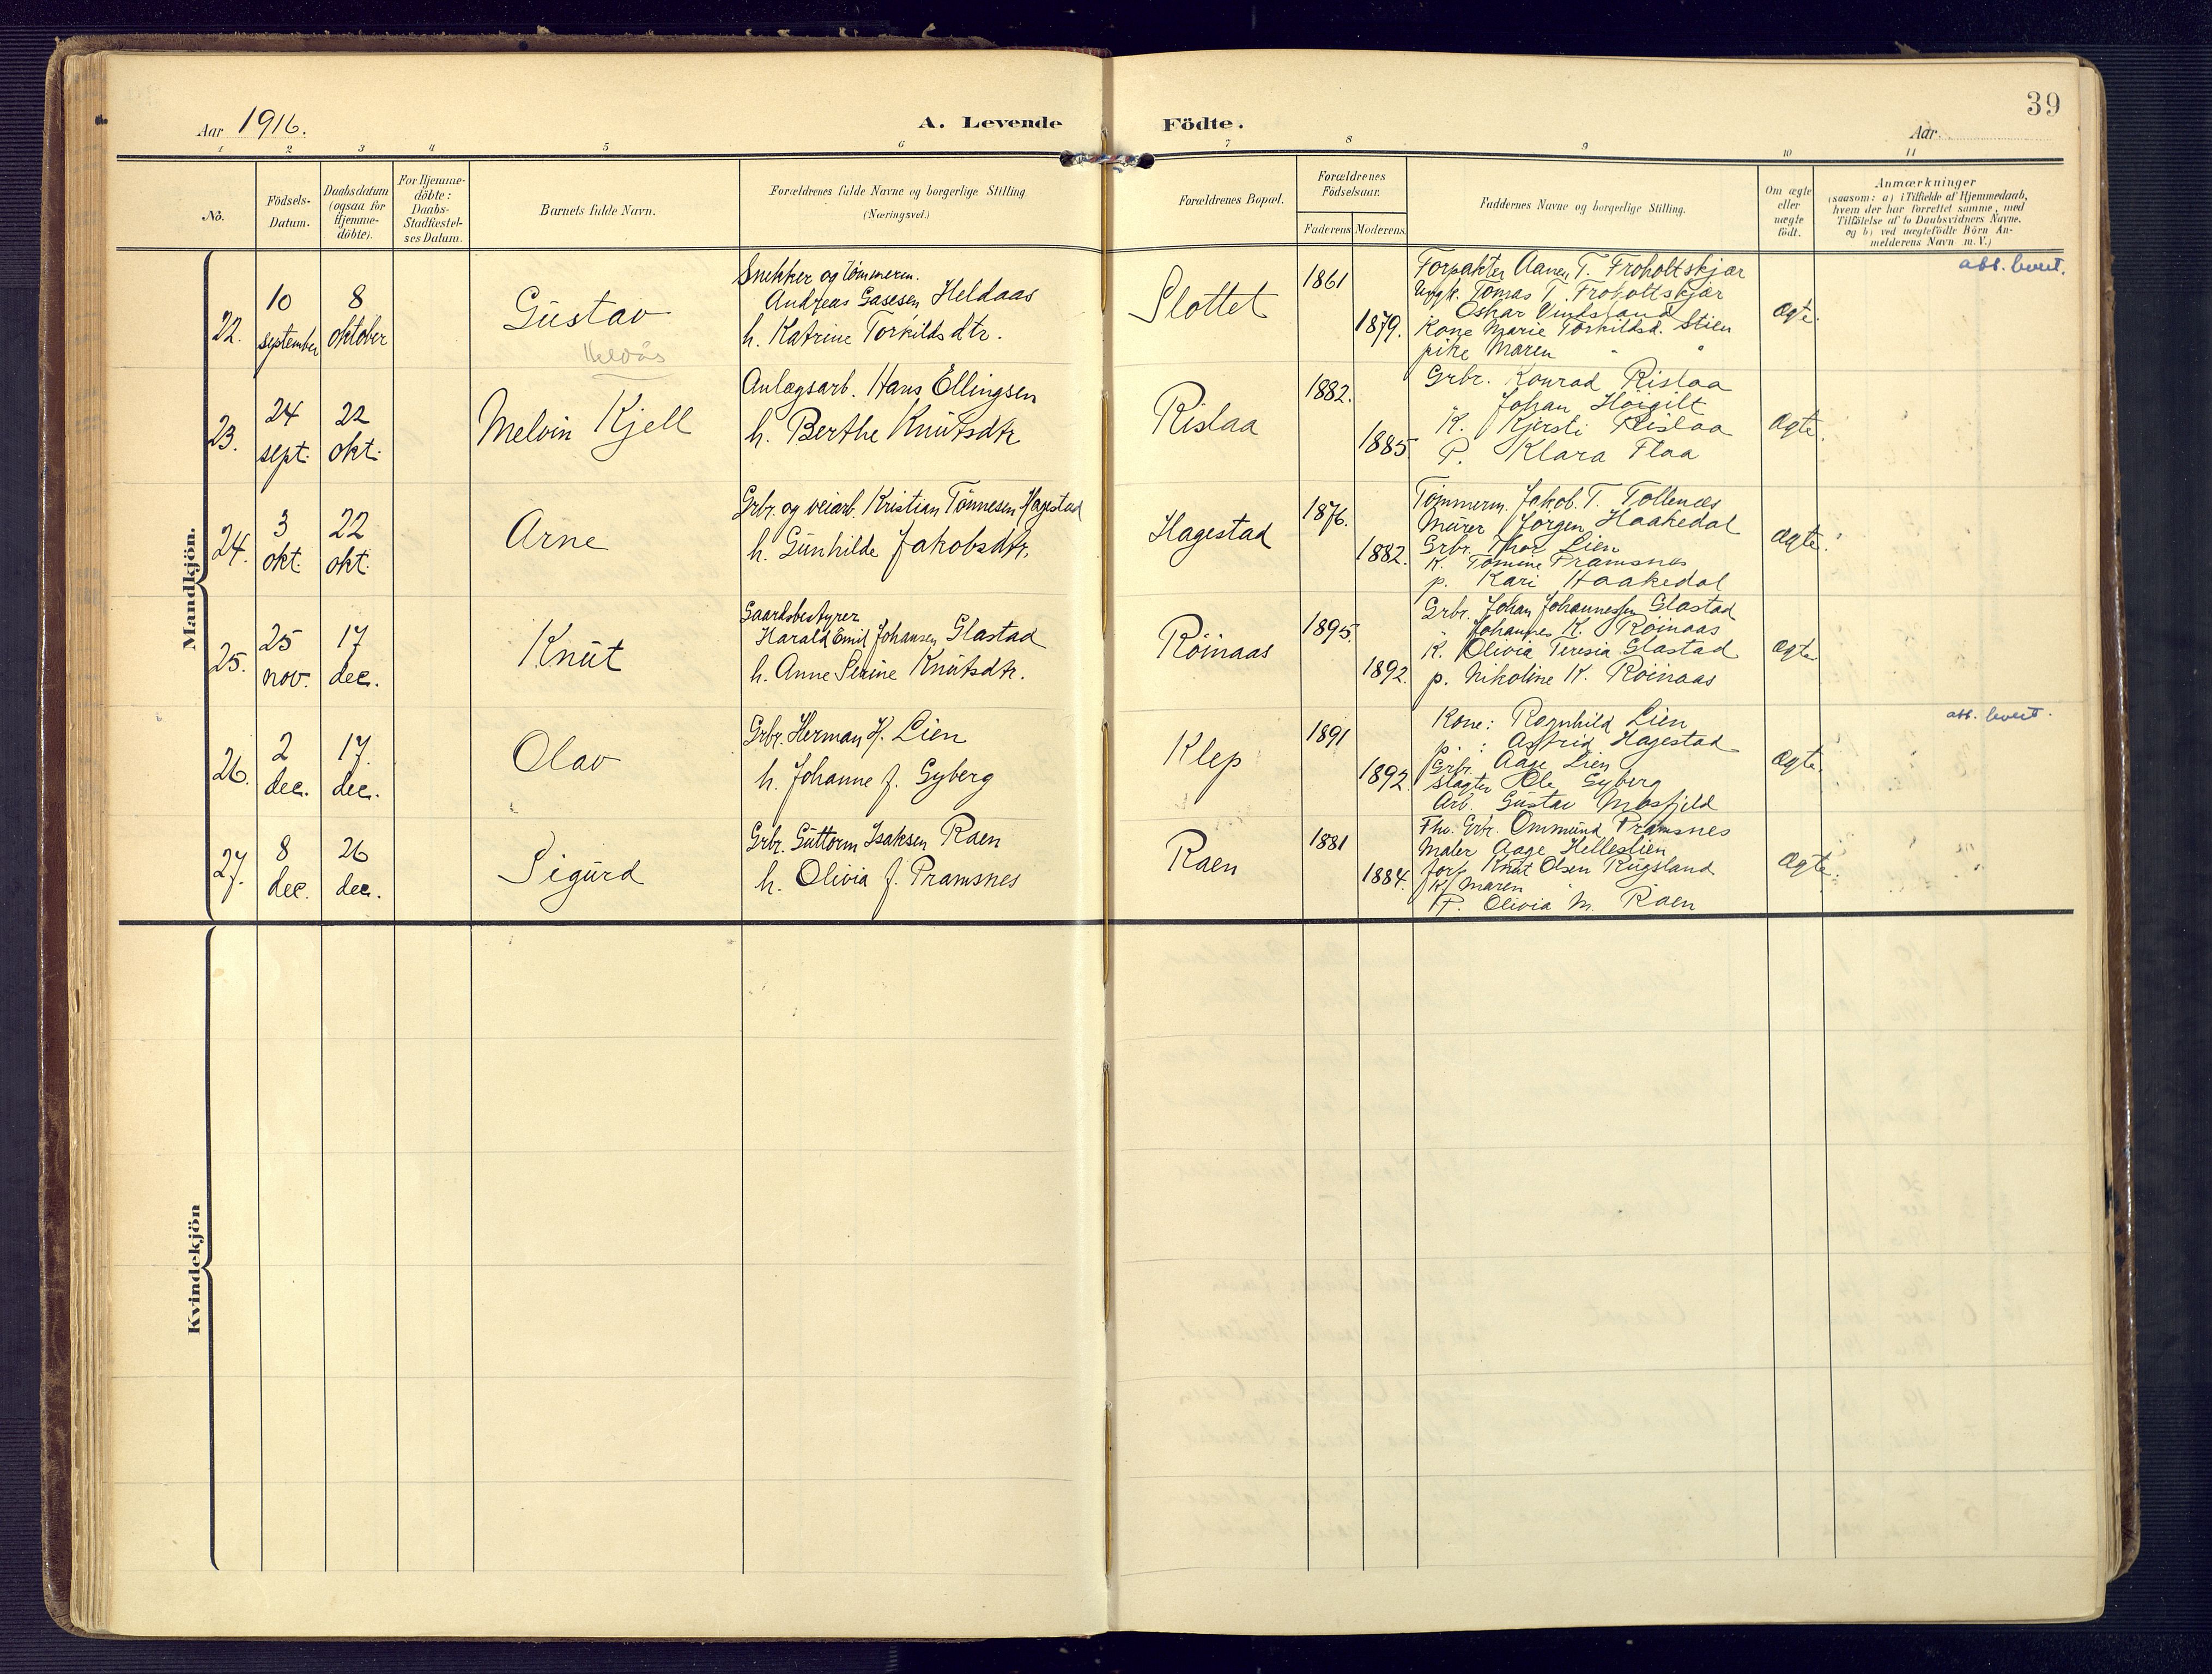 39
Aar 1916.
A. Levende Födte.
Aar
1 2 3 4 5 6 7 8 9 10 11
No.
Födsels-
Datum.
Daabsdatum
(ogsaa for
Hjemme-
döbte).
For Hjemme-
döbte:
Daabs-
Stadfæstel-
ses Datum.
Barnets fulde Navn.
Forældrenes fulde Navne og borgerlige Stilling.
(Næringsvei.)
Forældrenes Bopæl.
Forældrenes
Födselsaar.
Faderens Moderens
Faddernes Navne og borgerlige Stilling.
Om ægte
eller
uægte
födt.
Anmærkninger
(saasom: a) i Tilfælde af Hjemmedaab,
hvem der har forrettet samme, med
Tilföielse af to Daabsvidners Navne.
og b) ved uægtefödte Börn An-
melderens Navn m. V.)
Mandkjön.
22.
10
september
8
oktober
Gustav
Heldås
Snekker og tømmerm.
Andreas Gasesen Heldaas
h. Katrine Torkildsdtr.
Slottet
1861
1879.
Forpakter Aanen T. Froholtskjær
Ungk. Tomas T. Froholtskjær
Oskar Vindsland
Kone Marie Torkildsd. Stien
pike Maren " "
Ægte.
att. levert.
23.
24
sept.
22
okt.
Melvin Kjell
Anlægsarb. Hans Ellingsen
h. Berthe Knutsdtr
Rislaa
1882.
1885
Grbr. Konrad Rislaa
" Johan Høigilt
K. Kjersti Rislaa
P. Klara Flaa
Ægte.
24.
3
okt.
22
okt.
Arne
Grbr. og veiarb. Kristian Tønnesen Hagestad
h. Gunhilde Jakobsdtr.
Hagestad
1876.
1882.
Tømmerm. Jakob T. Tollenæs
Murer Jørgen Haakedal
Grbr. Thor Lien
K. Tomine Pramsnes
p. Kari Haakedal
Ægte.
25.
25
nov.
17
dec.
Knut
Gaardsbestyrer
Harald Emil Johansen Glastad
h. Anne Serine Knutsdtr.
Röinaas
1895.
1892.
Grbr. Johan Johannessen Glastad
" Johannes K. Röinaas
K. Olivia Teresia Glastad
p. Nikoline K. Röinaas
Ægte
26.
2
dec.
17.
dec.
Olav
Grbr. Herman H. Lien
h. Johanne J. Gyberg
Klep
1891
1892.
Kone: Ragnhild Lien
p. : Astrid Hagestad
Grbr. Aage Lien
Slagter Ole Gyberg
Arb. Gustav Mosfjeld
Ægte.
att. levert.
27.
8
dec.
26
dec.
Sigurd
Grbr. Guttorm Isaksen Raen
h. Olivia J. Pramsnes
Raen
1881
1884.
Fhv. Grbr. Ommund Pramsnes
Maler Aage Helleslien
forp. Knut Olsen Rugsland
K. Maren "
P. Olivia M. Raen
Ægte.
Kvindekjön